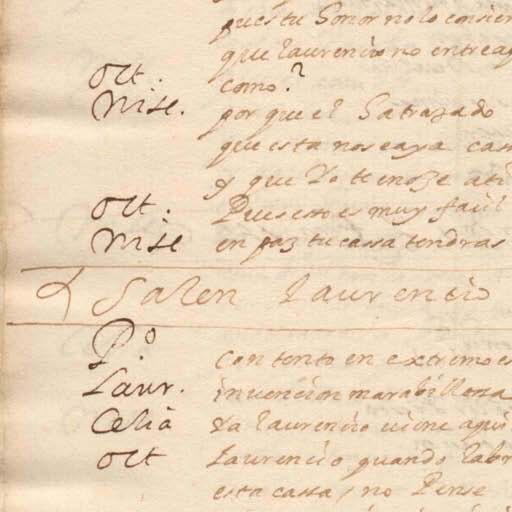 pues tu Señor no lo consien
que laurencio no entre aq
oct. como?
nise. por que el a trazado
que esta nos eaya cas
y que Yo te enoze ati
oct. Pues esto es muy façil
nise en paz tu cassa tendras
Salen laurencio
P.º contento en extremo es
Laur. invencion marabillosa
Celia Ya laurencio viene aqui
oct laurencio quando labr
esta cassa, no Pense